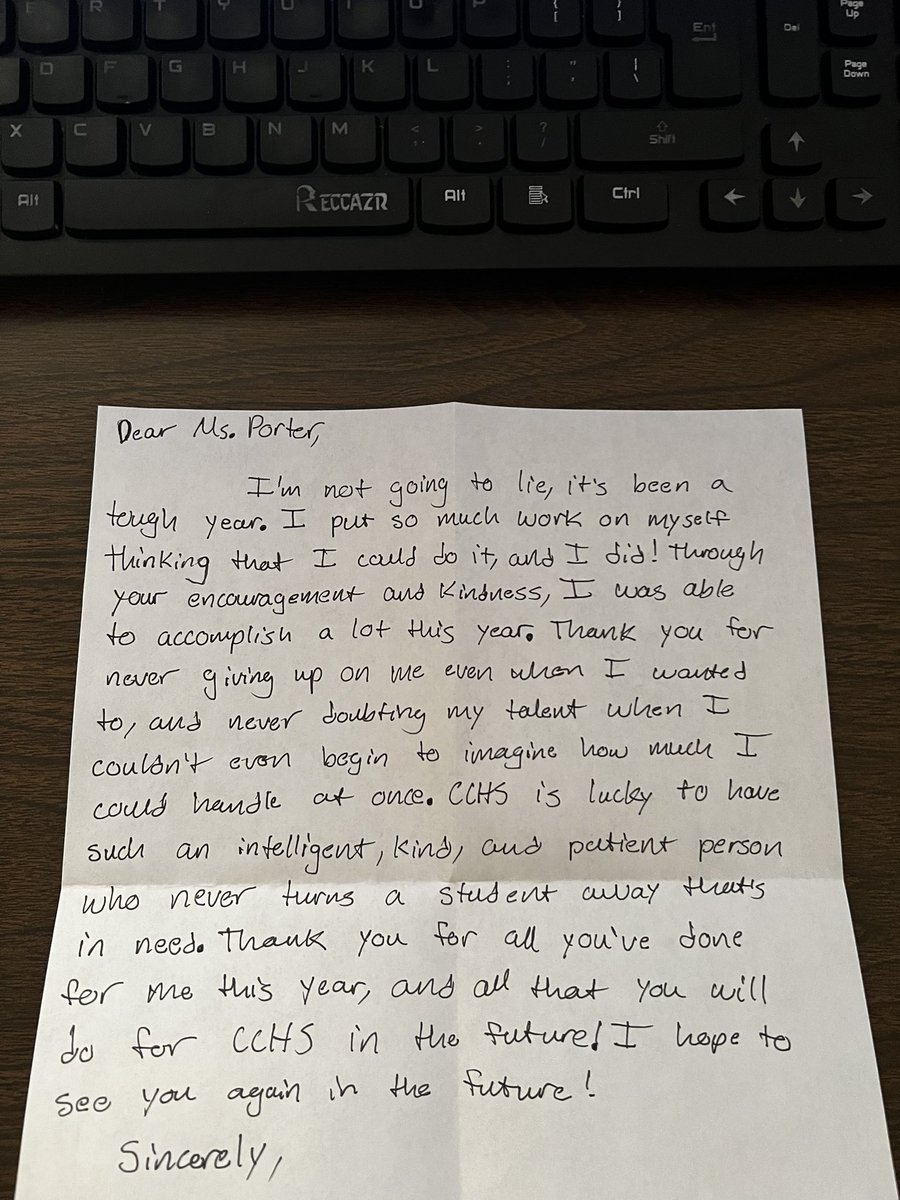 E R T Y U I O P { [ } ] Ent Del Page Up
D F G H J K L : ; " ' | \ Page Down
X C V B N M < , > . ? / Shift
Alt RECCAZR Alt Ctrl
Dear Ms. Porter,
I'm not going to lie, it's been a
tough year. I put so much work on myself
thinking that I could do it, and I did! Through
your encouragement and kindness, I was able
to accomplish a lot this year. Thank you for
never giving up on me even when I wanted
to, and never doubting my talent when I
couldn't even begin to imagine how much I
could handle at once. CCHS is lucky to have
such an intelligent, kind, and patient person
who never turns a student away that's
in need. Thank you for all you've done
for me this year, and all that you will
do for CCHS in the future! I hope to
see you again in the future!
Sincerely,